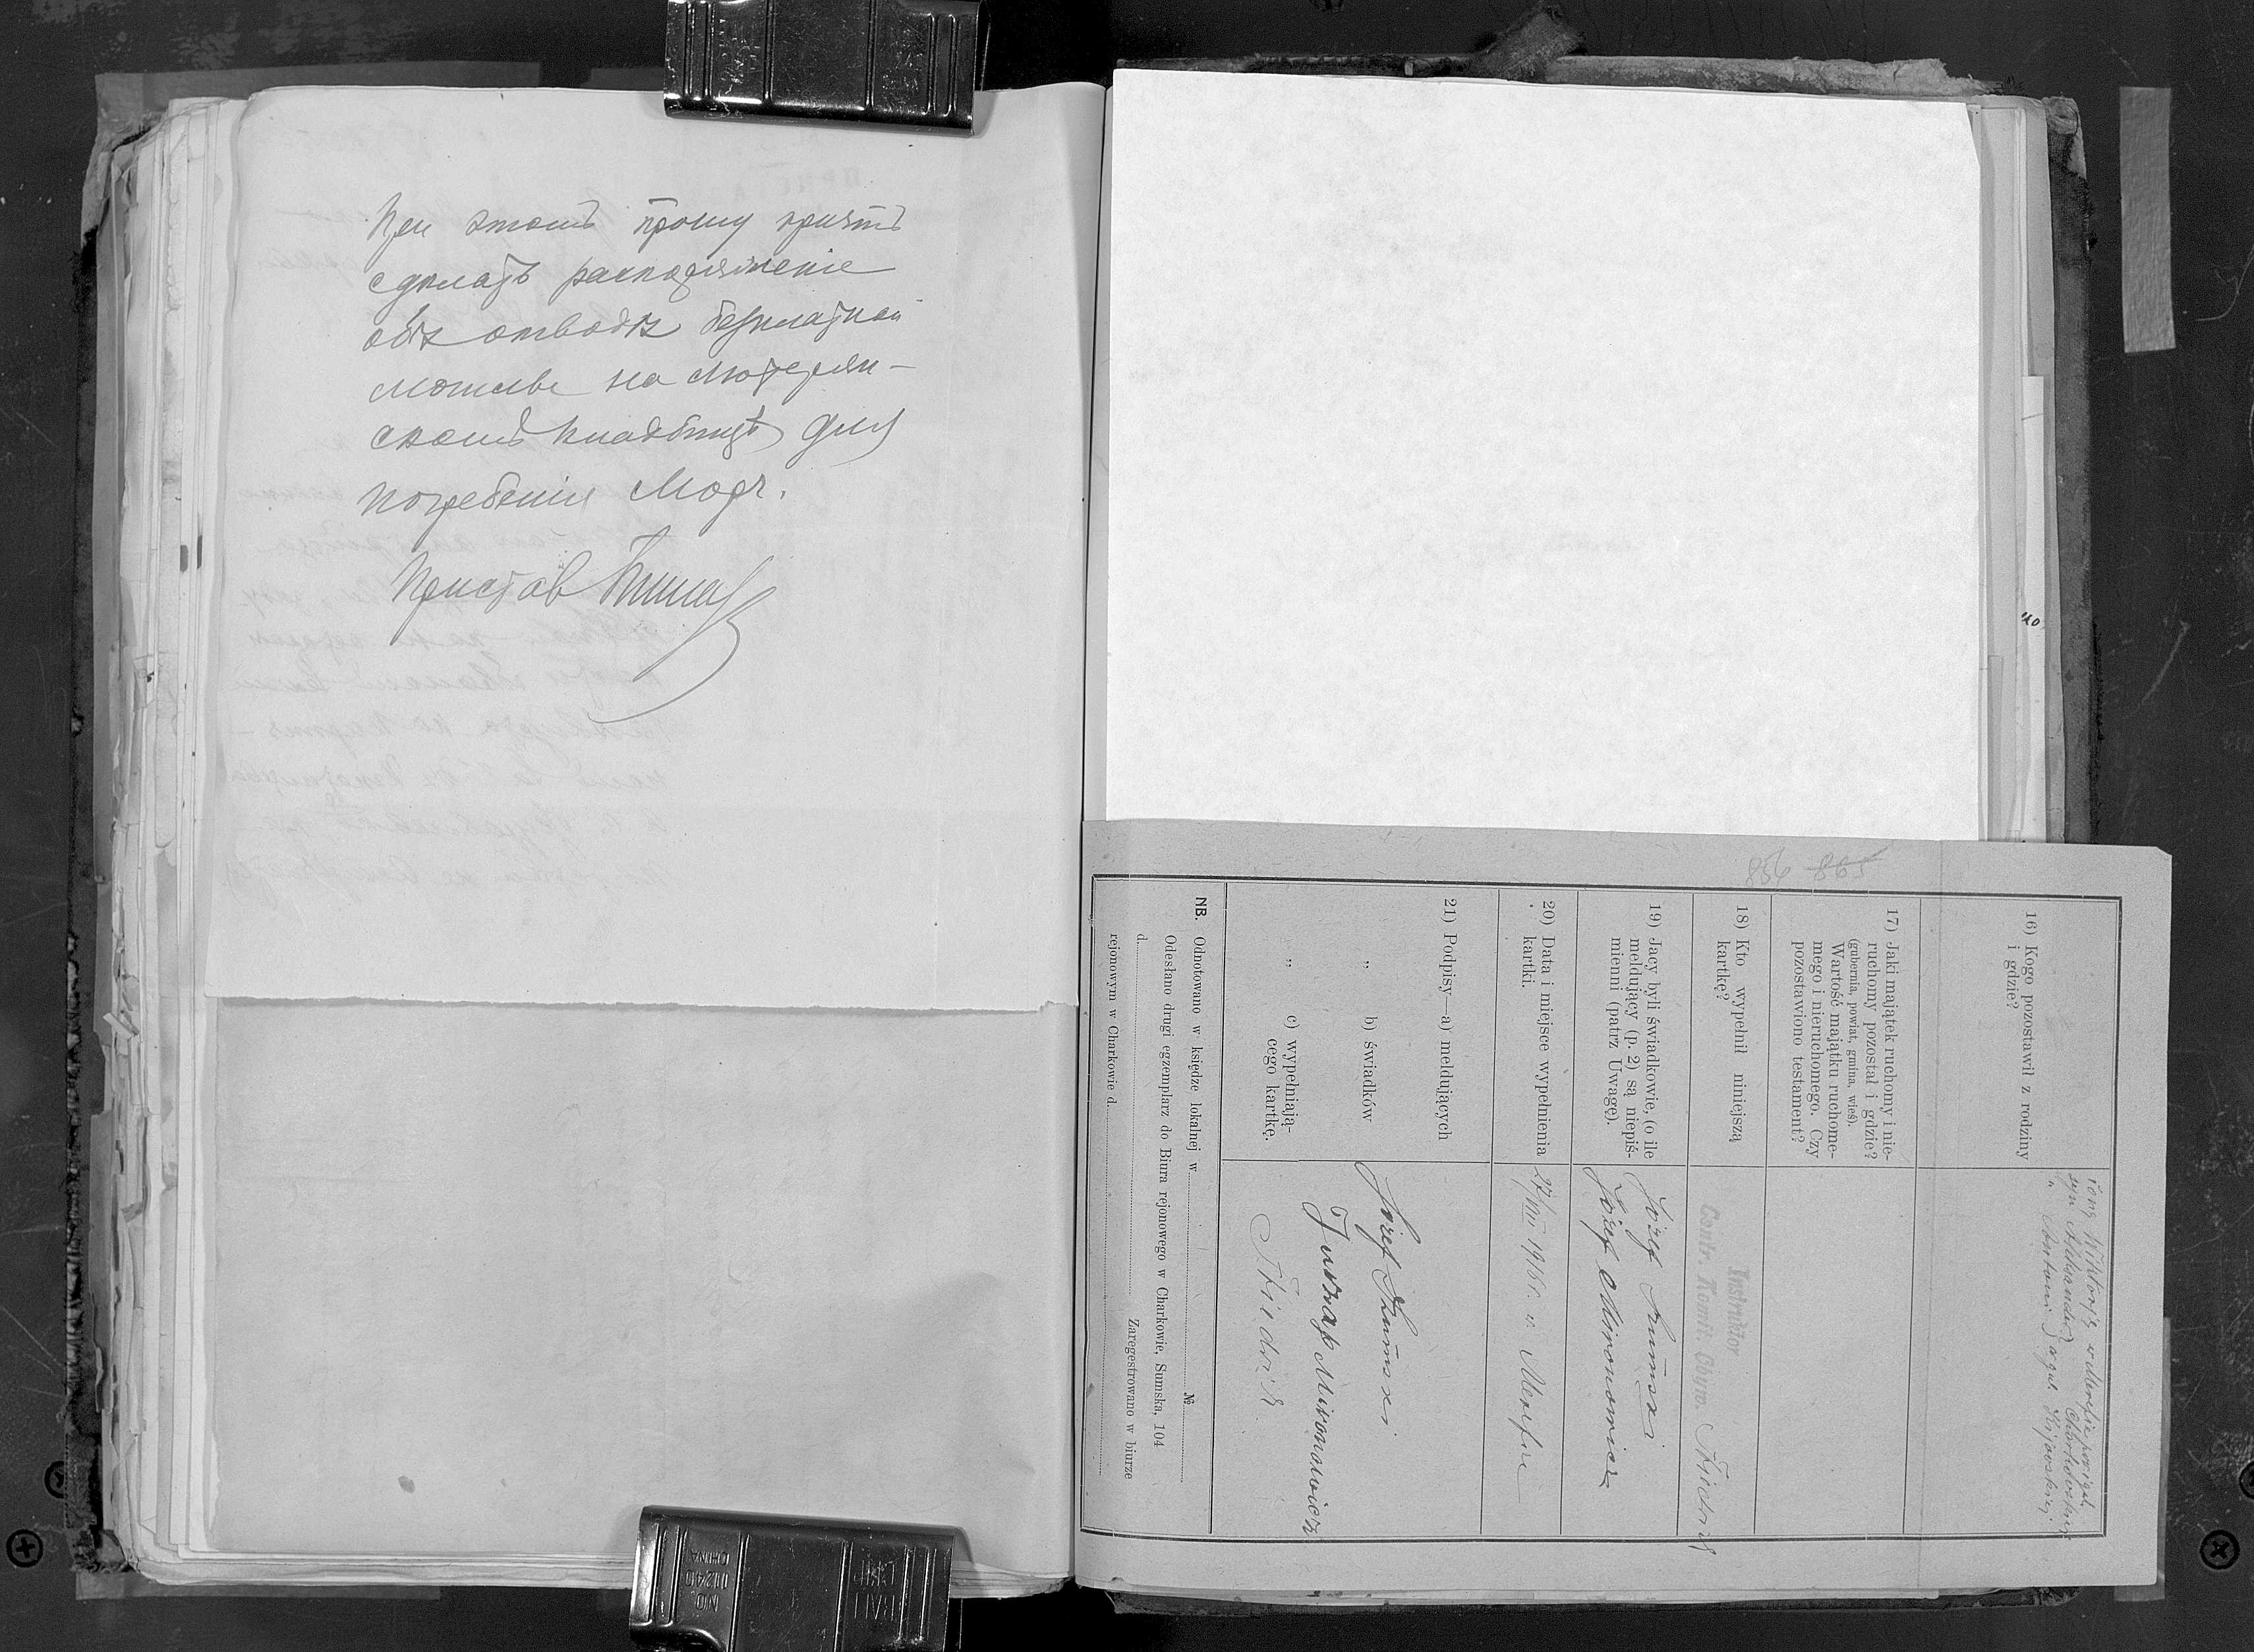 При этомъ прошу принять
сдѣлать распоряженіе
объ отводѣ безплатной
могилы на Лютеран-
скомъ кладбищѣ для
погребенія Мор.
Приставъ
856 865
16) Kogo pozostawił z rodziny
i gdzie?
żonę Wiktorję w Merefie pow. i gub.
syn Aleksander Charkowskiej
" Antoni
17) Jaki majątek ruchomy i nie-
ruchomy pozostał i gdzie?
(gubernia, powiat, gmina, wieś).
Wartość majątku ruchome-
mego i nieruchomego. Czy
pozostawiono testament?
18) Kto wypełnił niniejszą
kartkę?
Instruktor
Centr. Komit. Obyw.
19) Jacy byli świadkowie, (o ile
meldujący (p. 2) są niepiś-
mienni (patrz Uwagę).
Józef Szumski
Józef Mironowicz
20) Data i miejsce wypełnienia
kartki.
27/VIII 1916 r. w. Merefie
21) Podpisy—a) meldujących
„ b) świadków
Józef Szumski
Juzrap Mironowicz
„ c) wypełniają-
cego kartkę.
NB. Odnotowano w księdze lokalnej w №
Odesłano drugi egzemplarz do Biura rejonowego w Charkowie, Sumska, 104
d. Zaregestrowano w biurze
rejonowym w Charkowie d.
NO.
0124D
CHINA